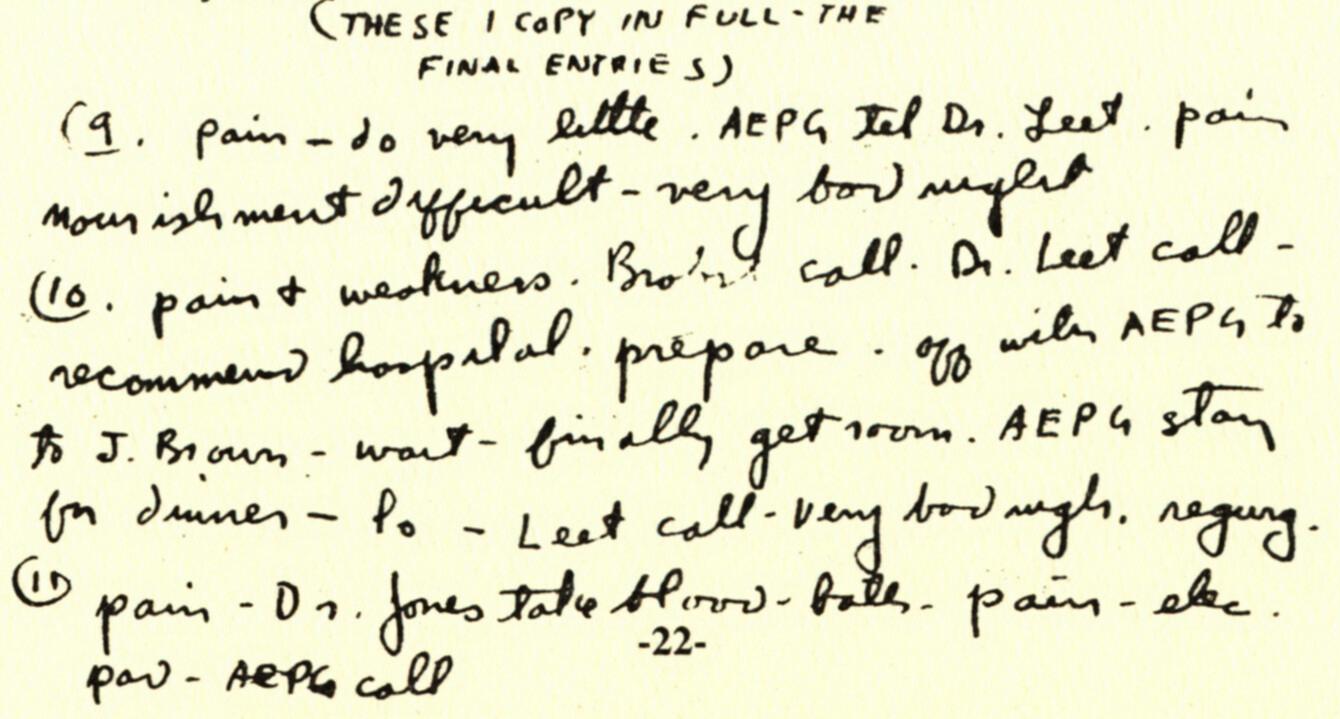 (THESE I COPY IN FULL - THE
FINAL ENTRIES)
(9. pain - do very little. AEPG tel Dr. Leet. pain
nourishment difficult - very bad night
(10. pain & weakness. call. Dr. Leet call -
recommend hospital. prepare. off with AEPG to
to J. Brown - wait - finally get room. AEPG stay
for dinner - - Leet call - very bad nigh. regurg.
(11) pain - Dr. Jones take blood - bath - pain - elec.
-22-
pad - AEPG call